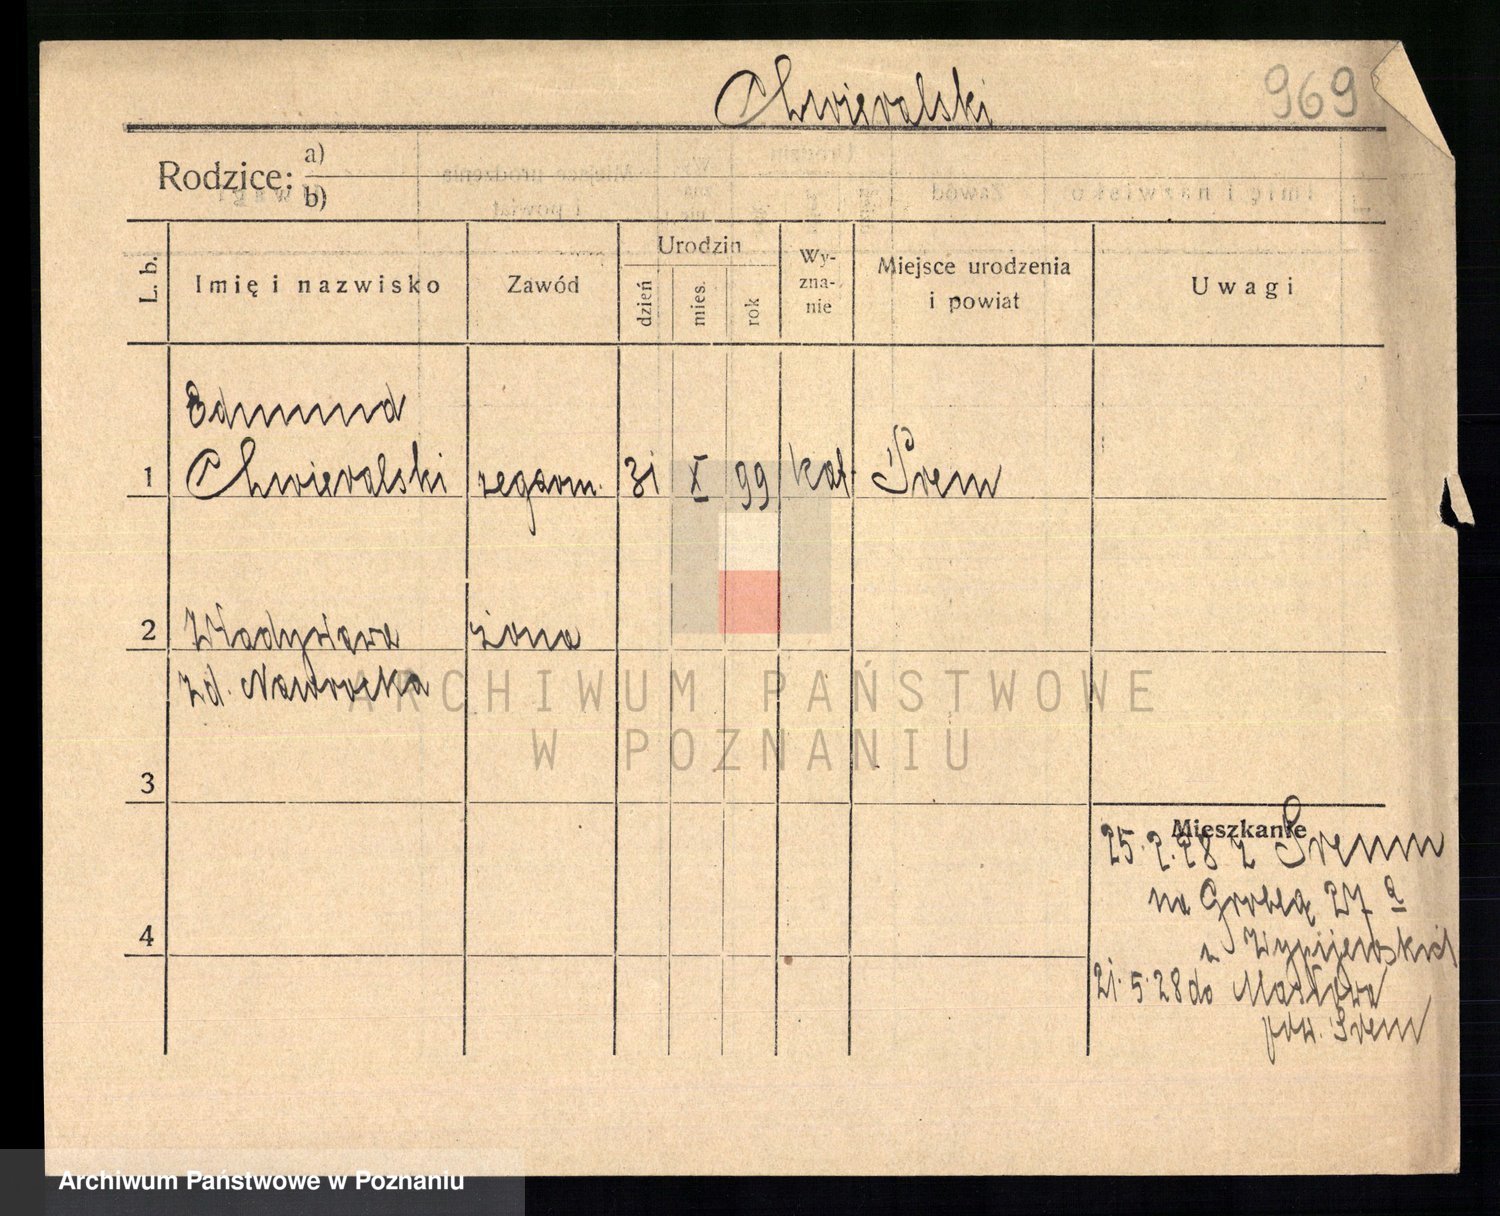 Chwieralski
969
Rodzice: a)
b)
L. b.
Imię i nazwisko
Zawód
Urodzin
dzień
mies.
rok
Wy-
zna-
nie
Miejsce urodzenia
i powiat
Uwagi
Edmund
1 Chwieralski zegarm. 31 X 99 kat. Śrem
2 Władysława żona
zd. Nawrocka
3
Mieszkanie
25. 2. 28 z Śremu
na Groblą 27 a
u
4
21. 5. 28 do
pow. Śrem
ARCHIWUM PAŃSTWOWE
W POZNANIU
Archiwum Państwowe w Poznaniu